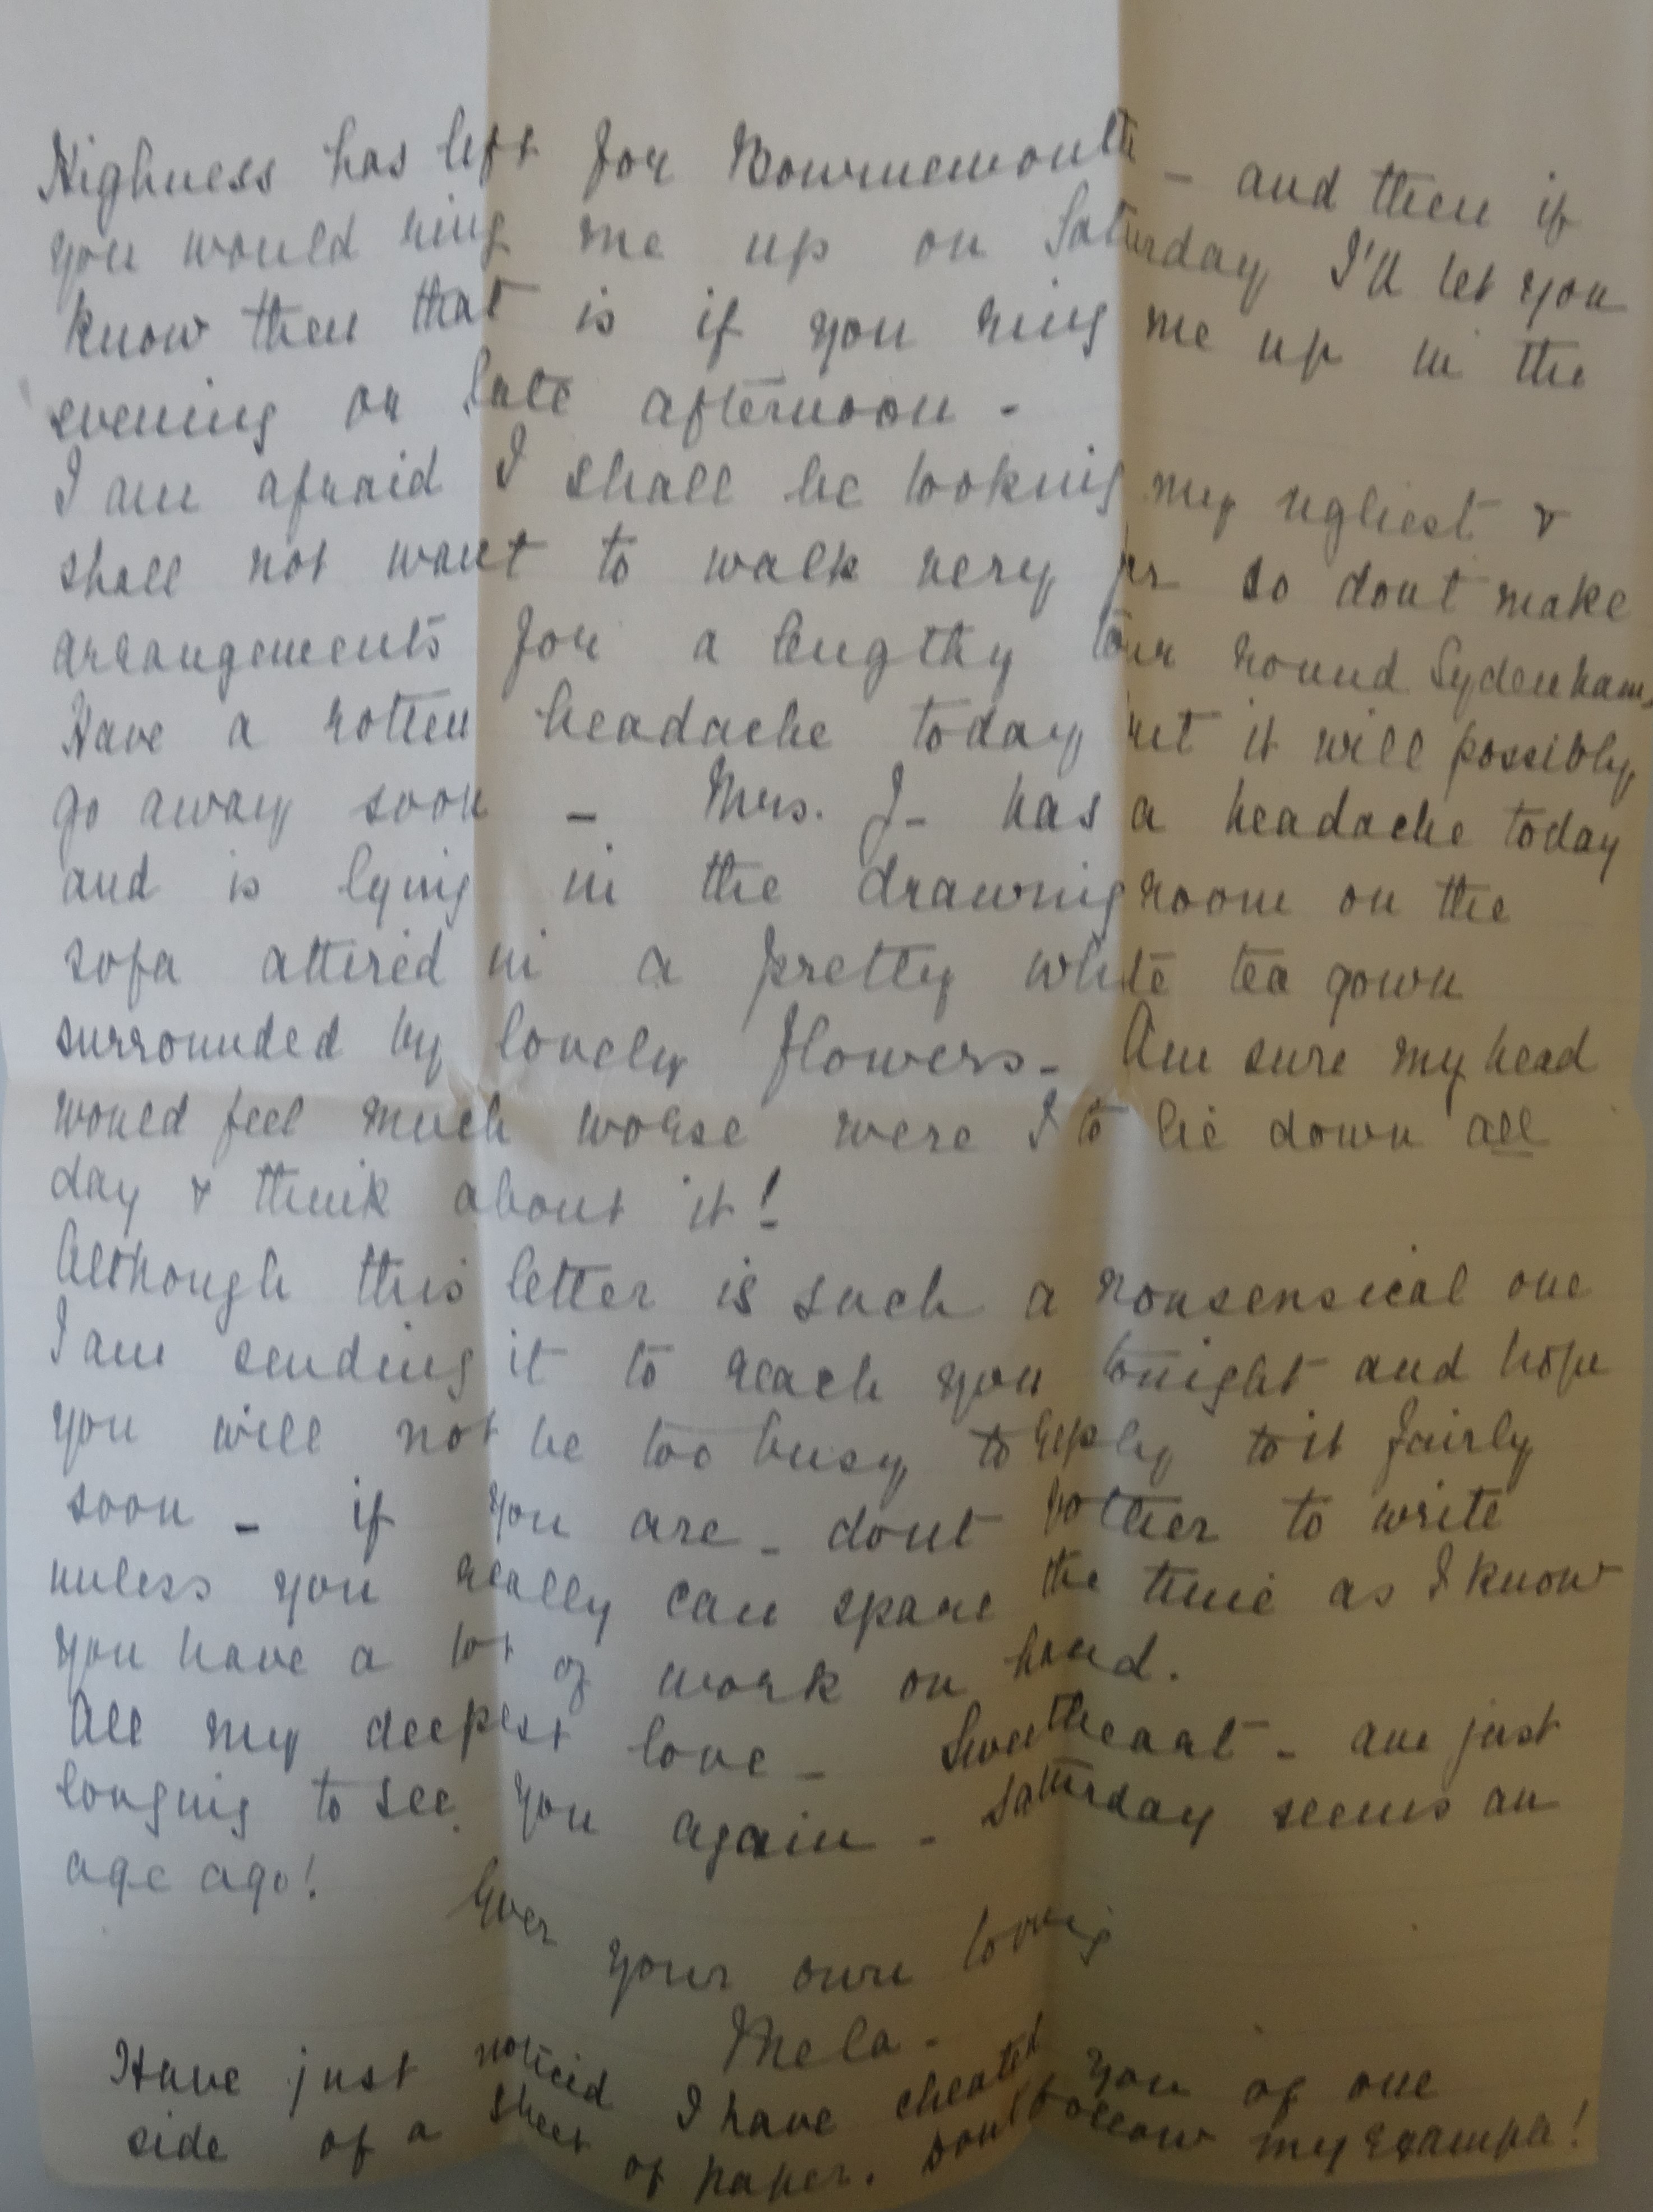 Highness has left for Bournemouth - and then if
you would ring me up on Saturday I'll let you
know then that is if you ring me up in the
evening or late afternoon -
I am afraid I shall be looking my ugliest &
shall not want to walk very far so dont make
arrangements for a lengthy tour round Sydenham.
Have a rotten headache today but it will possibly
go away soon - Mrs. J- has a headache today
and is lying in the drawing room on the
sofa attired in a pretty white tea gown
surrounded by lovely flowers - Am sure my head
would feel much worse were I to lie down all
day & think about it!
Although this letter is such a nonsensical one
I am sending it to reach you tonight and hope
you will not be too busy to reply to it fairly
soon - if you are - dont bother to write
unless you really can spare the time as I know
you have a lot of work on hand.
All my deepest love - Sweetheart - am just
longing to see you again - Saturday seems an
age ago!
Ever your own loving
Mela -
Have just noticed I have cheated you of one
side of a sheet of paper. Dont follow my example!